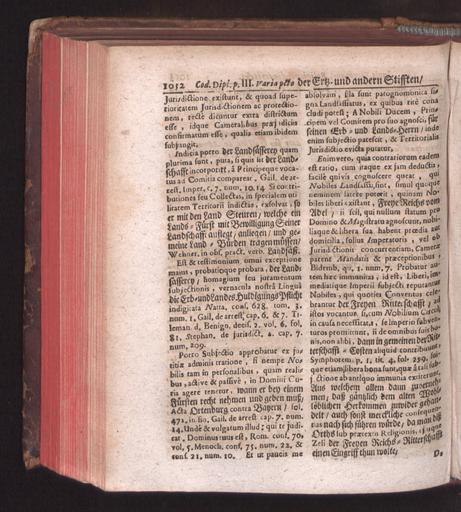 1032 Cod. Dipl. p. III. Varia pcto der Ertz- und andern Stifften/
Jurisdictione existunt, & quoad supe-
rioritatem Jurisdictionem ac protectio-
nem, recte dicuntur extra districtum
esse, idque Cameralibus præjudiciis
confirmatum esse, qualia etiam ibidem
subjungit.
Indicia porro der Landsasserey quam
plurima sunt, puta, si quis sit der Land-
schafft incorporirt, à Principeque voca-
tus ad Comitia compareat, Gail. de ar-
rest. Imper. c. 7. num. 10. 14 Si contri-
butiones seu Collectas, in specialem uti
litatem Territorii indictas, exsolvat, so
er mit den Land Steuren/ welche ein
Lands-Fürst mit Bewilligung Seiner
Landschafft aufflegt/ anliegen/ und ge-
meine Land-Bürden tragen müssen/
Wehner. in obs. pract. verb. Landsäß.
Est & testimonium omni exceptione
majus, probatioque probata, der Land-
sasserey/ homagium seu juramentum
subjectionis, vernacula nostrâ Linguâ
die Erb- und Lands-Huldigungs-Pflicht
indigitata Natta, cons. 638. tom. 3.
num. 1. Gail, de arrest. cap. 6. & 7. Ti-
leman. d. Benign. decis. 2. vol. 6. fol.
81. Stephan. de jurisdict. 2. cap. 7.
num. 209.
Porro Subjectio apprehenditur ex ju-
stitiæ administratione, si nempe No-
bilis tam in personalibus, quam reali-
bus, active & passivè, in Domini Cu-
ria agere teneatur. wann er bey einem
Fürsten recht nehmen und geben muß/
Acta Ortenburg contra Bayern/ fol.
471. in fin. Gail. de arrest. cap. 7. num.
14. Unde & vulgatum illud; qui te judi-
cat, Dominus tuus est, Rom. cons. 70.
vol. 5. Menoch. cons. 75. num. 22. &
cons. 21. num. 10. Et ut paucis me
absolvam, illa sunt patognomonica si-
gna Landsassiatus, ex quibus ritè cona
cludi potest; A Nobili Ducem, Prin-
cipem vel Comitem pro suo agnosci, für
seinen Erb- und Lands-Herrn/ inde
enim subjectio patescit, & Territorialis
Jurisdictio evicta putatur.
Enimvero, quia contrariorum eadem
est ratio, cum itaque ex jam deductis,
facile quivis cognoscere queat, qui
Nobiles Landsassii, sint, simul quoque
neminem latere poterit, quinam No-
biles liberi existant, Freye Reichs vom
Adel/ ii scil. qui nullum statum pro
Domino & Magistratu agnoscunt, nobi-
liaque & libera sua habent prædia aut
domicilia, solius Imperatoris, vel ob
Jurisdictionis concurrentiam, Cameræ
parent Mandatis & præceptionibus,
Bidemb. qu. 1. num. 7. Probatur au-
tem hæc immunitas, id est, Liberi, im-
mediatique Imperii subjecti reputantur
Nobiles, qui quoties Conventus cele-
brantur der Freyen Ritterschafft/ ad
istos vocantur,
in causa necessitatis, se Imperio subven-
turos promittunt, ii de omnibus suis bo-
nis, non alibi, dann in gemeinen der Rit-
terschafft-Cösten aliquid contribuunt,
Symphorem. p. 1. tit. 4. fol. 239. Ii
que etiam libera bona sunt, quæ à tali sub-
jectione abantiquo immunia extiterunt.
Aus welchem allem dann zuverneh-
men/ daß gäntzlich dem alten Wohl-
löblichen Herkommen zuwider gehan-
delt/ auch sonst merckliche consequen-
tias nach sich führen würde/ da man diß
Orths sub prætextu Religionis,
der Freyen Reichs-Ritterschafft
einen Eingriff thun wolte/
D.